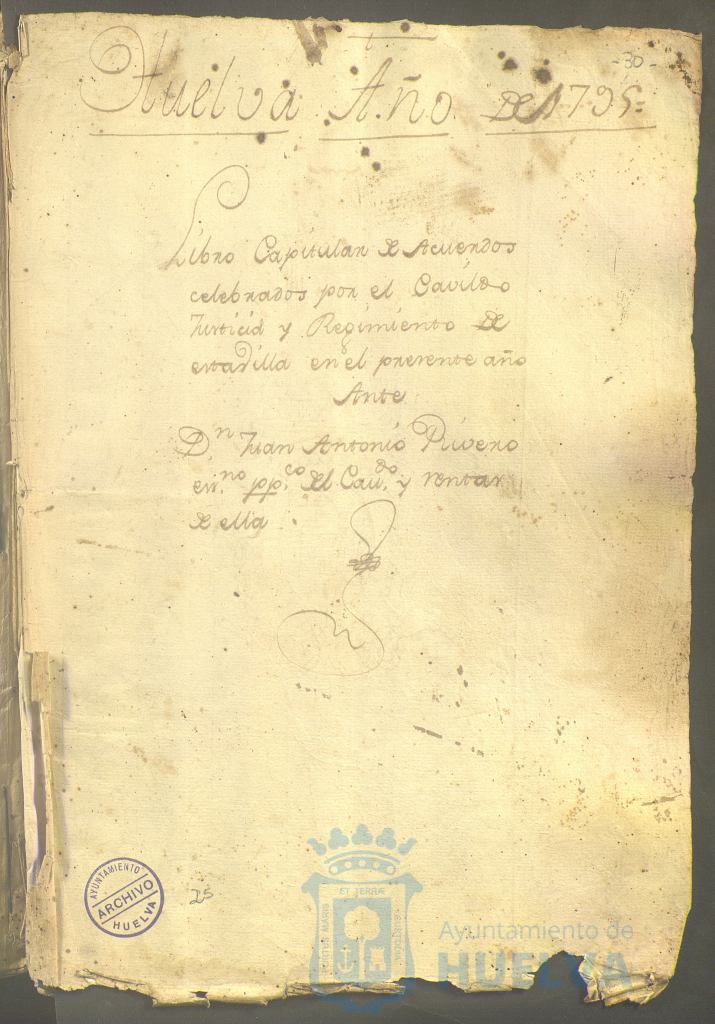 -30-
Huelva Año de 1795=
Libro Capitular de Acuerdos
celebrados por el Cavildo
Justicia y Regimiento de
esta Villa en el presente año
Ante
D.n Juan Antonio Rivero
es.no pp.co del Cav.do y rentas
de ella .
25
AYUNTAMIENTO
ARCHIVO
HUELVA
ET TERRAE
PORTUS MARIS
CUSTODIA
Ayuntamiento de
HUELVA